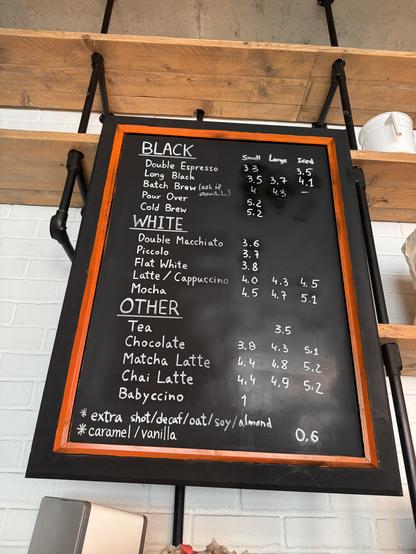 BLACK Small Large Iced
Double Espresso 3.3 3.5
Long Black 3.5 3.7 4.1
Batch Brew (ask if) 4 4.3 -
Pour Over 5.2
Cold Brew 5.2
WHITE
Double Macchiato 3.6
Piccolo 3.7
Flat White 3.8
Latte / Cappuccino 4.0 4.3 4.5
Mocha 4.5 4.7 5.1
OTHER
Tea 3.5
Chocolate 3.8 4.3 5.1
Matcha Latte 4.4 4.8 5.2
Chai Latte 4.4 4.9 5.2
Babyccino 1
* extra shot/decaf/oat/soy/almond
* caramel/vanilla 0.6